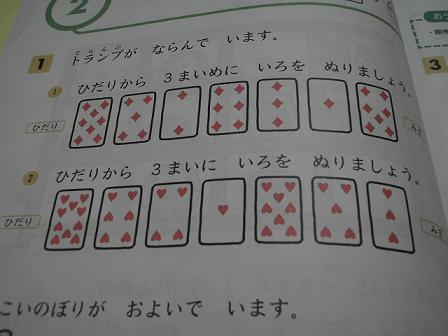 2
お
1
とらんぷ
トランプが ならんで います。
3
① ひだりから 3まいめに いろを ぬりましょう。
ひだり
み
② ひだりから 3まいに いろを ぬりましょう。
ひだり
み
こいのぼりが およいで います。